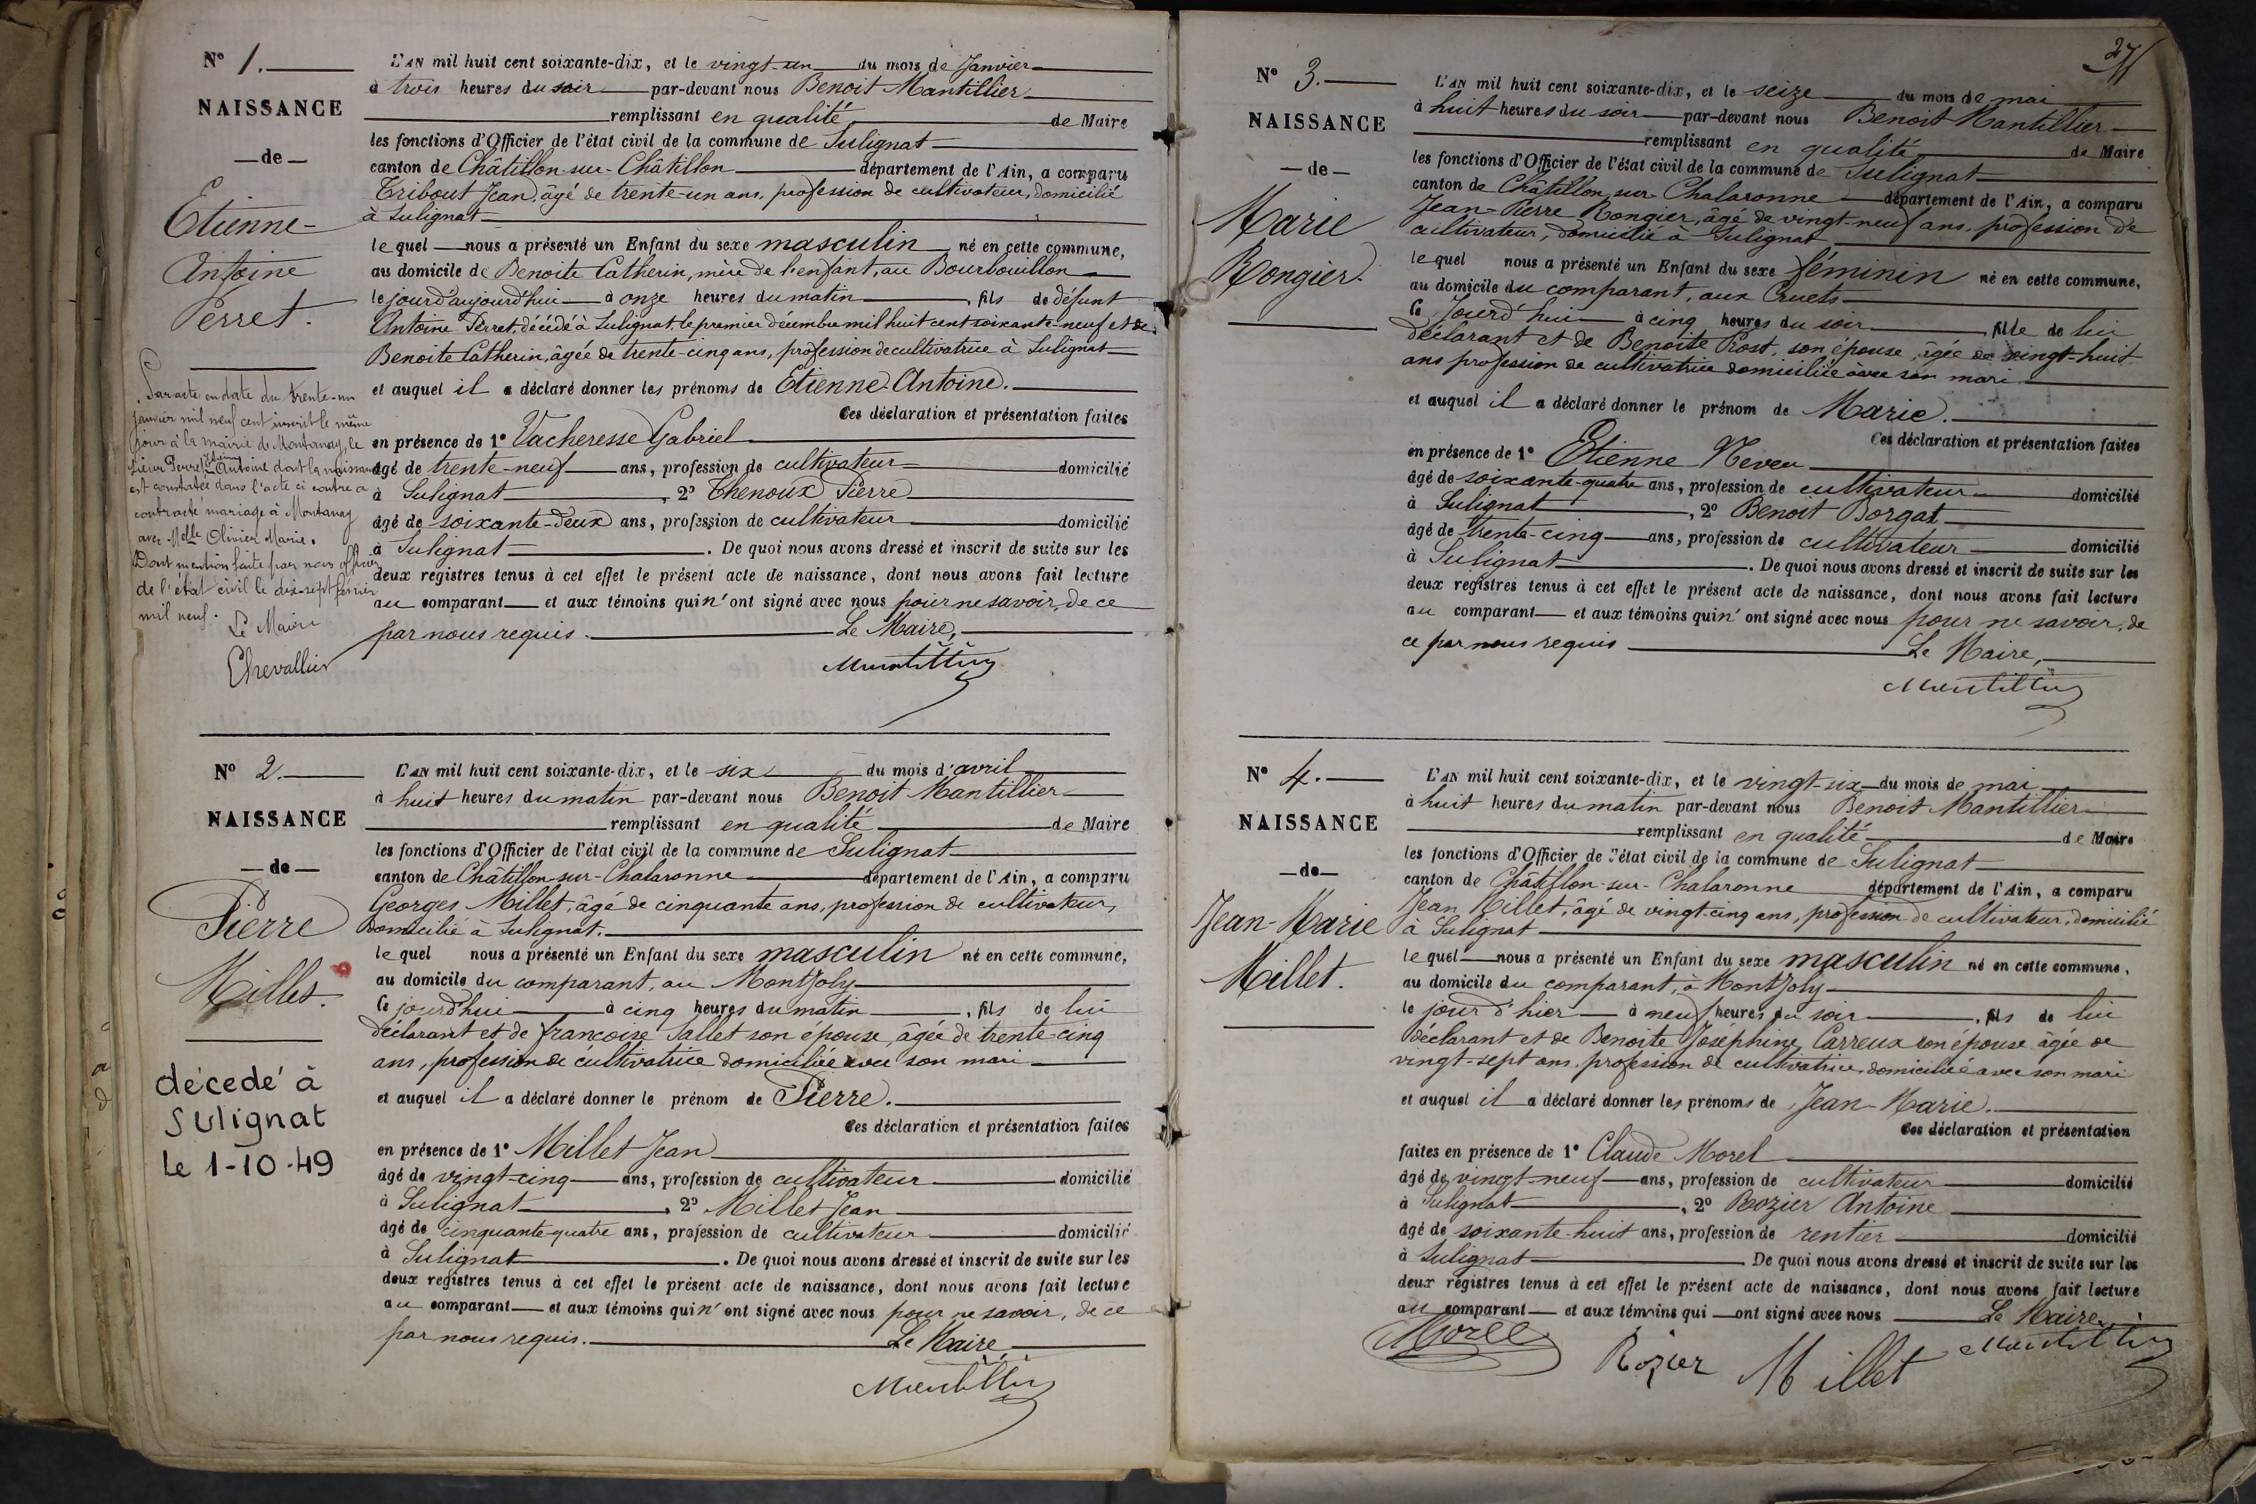 N° 1.
NAISSANCE
— de —
Etienne-
Antoine
Perret.
Par acte en date du trente-un
janvier mil neuf cent inscrit le même
jour à la mairie de Montanay, le
sieur Perret Etienne Antoine dont la naissance
est constatée dans l'acte ci contre a
contracté mariage à Montanay
avec Melle Olivier Marie.
Dont mention faite par nous officier
de l'état civil le dix-sept février
mil neuf.
Le Maire
Chevallier
L'AN mil huit cent soixante-dix, et le vingt-un du mois de Janvier
à trois heures du soir par-devant nous Benoit Mantillier
remplissant en qualité de Maire
les fonctions d'Officier de l'état civil de la commune de Sulignat
canton de Châtillon-sur-Châtillon département de l'Ain, a comparu
Tribout Jean, âgé de trente-un ans, profession de cultivateur, domicilié
à Sulignat
lequel nous a présenté un Enfant du sexe masculin né en cette commune,
au domicile de Benoite Catherin, mère de l'enfant, au Bourbouillon
le jourd'aujourd'hui à onze heures du matin, fils de défunt
Antoine Perret, décédé à Sulignat, le premier décembre mil huit cent soixante-neuf et de
Benoite Catherin, âgée de trente-cinq ans, profession de cultivatrice à Sulignat
et auquel il a déclaré donner les prénoms de Etienne-Antoine.
Ces déclaration et présentation faites
en présence de 1° Vacheresse Gabriel
âgé de trente-neuf ans, profession de cultivateur domicilié
à Sulignat, 2° Thenoux Pierre
âgé de soixante-deux ans, profession de cultivateur domicilié
à Sulignat. De quoi nous avons dressé et inscrit de suite sur les
deux registres tenus à cet effet le présent acte de naissance, dont nous avons fait lecture
au comparant et aux témoins qui n'ont signé avec nous pour ne savoir, de ce
par nous requis. Le Maire,
Mantillier
N° 2.
NAISSANCE
— de —
Pierre
Millet.
décedé à
Sulignat
le 1-10-49
L'AN mil huit cent soixante-dix, et le six du mois d'avril
à huit heures du matin par-devant nous Benoit Mantillier
remplissant en qualité de Maire
les fonctions d'Officier de l'état civil de la commune de Sulignat
canton de Châtillon-sur-Chalaronne département de l'Ain, a comparu
Georges Millet, âgé de cinquante ans, profession de cultivateur,
domicilié à Sulignat.
lequel nous a présenté un Enfant du sexe masculin né en cette commune,
au domicile du comparant, au Montjoly
le jourd'hui à cinq heures du matin, fils de lui
déclarant et de françoise Sallet son épouse, âgée de trente-cinq
ans, profession de cultivatrice domiciliée avec son mari
et auquel il a déclaré donner le prénom de Pierre.
Ces déclaration et présentation faites
en présence de 1° Millet Jean
âgé de vingt-cinq ans, profession de cultivateur domicilié
à Sulignat, 2° Millet Jean
âgé de cinquante-quatre ans, profession de cultivateur domicilié
à Sulignat. De quoi nous avons dressé et inscrit de suite sur les
deux registres tenus à cet effet le présent acte de naissance, dont nous avons fait lecture
au comparant et aux témoins qui n'ont signé avec nous pour ne savoir, de ce
par nous requis. Le Maire
Mantillier
N° 3.
NAISSANCE
— de —
Marie
Rongier.
L'AN mil huit cent soixante-dix, et le seize du mois de mai
à huit heures du soir par-devant nous Benoit Mantillier
remplissant en qualité de Maire
les fonctions d'Officier de l'état civil de la commune de Sulignat
canton de Châtillon sur Chalaronne département de l'Ain, a comparu
Jean-Pierre Rongier, âgé de vingt-neuf ans, profession de
cultivateur, domicilié à Sulignat
lequel nous a présenté un Enfant du sexe féminin né en cette commune,
au domicile du comparant, aux Cruets
le Jourd'hui à cinq heures du soir, fille de lui
déclarant et de Benoite Prost, son épouse, âgée de vingt-huit
ans profession de cultivatrice domiciliée avec son mari
et auquel il a déclaré donner le prénom de Marie.
Ces déclaration et présentation faites
en présence de 1° Etienne Neveu
âgé de soixante-quatre ans, profession de cultivateur domicilié
à Sulignat, 2° Benoit Borgat
âgé de trente-cinq ans, profession de cultivateur domicilié
à Sulignat. De quoi nous avons dressé et inscrit de suite sur les
deux registres tenus à cet effet le présent acte de naissance, dont nous avons fait lecture
au comparant et aux témoins qui n'ont signé avec nous pour ne savoir, de
ce par nous requis Le Maire,
Mantillier
N° 4.
NAISSANCE
— de —
Jean-Marie
Millet.
L'AN mil huit cent soixante-dix, et le vingt-six du mois de mai
à huit heures du matin par-devant nous Benoit Mantillier
remplissant en qualité de Maire
les fonctions d'Officier de l'état civil de la commune de Sulignat
canton de Châtillon-sur-Chalaronne département de l'Ain, a comparu
Jean Millet, âgé de vingt-cinq ans, profession de cultivateur, domicilié
à Sulignat
lequel nous a présenté un Enfant du sexe masculin né en cette commune,
au domicile du comparant, à Montjoly
le jour d'hier à neuf heures du soir, fils de lui
déclarant et de Benoite Joséphine Carreux son épouse âgée de
vingt-sept ans, profession de cultivatrice, domiciliée avec son mari
et auquel il a déclaré donner les prénoms de Jean-Marie.
Ces déclaration et présentation
faites en présence de 1° Claude Morel
âgé de vingt-neuf ans, profession de cultivateur domicilié
à Sulignat, 2° Rozier Antoine
âgé de soixante-huit ans, profession de rentier domicilié
à Sulignat De quoi nous avons dressé et inscrit de suite sur les
deux registres tenus à cet effet le présent acte de naissance, dont nous avons fait lecture
au comparant et aux témoins qui ont signé avec nous Le Maire,
Morel Rozier Millet Mantillier